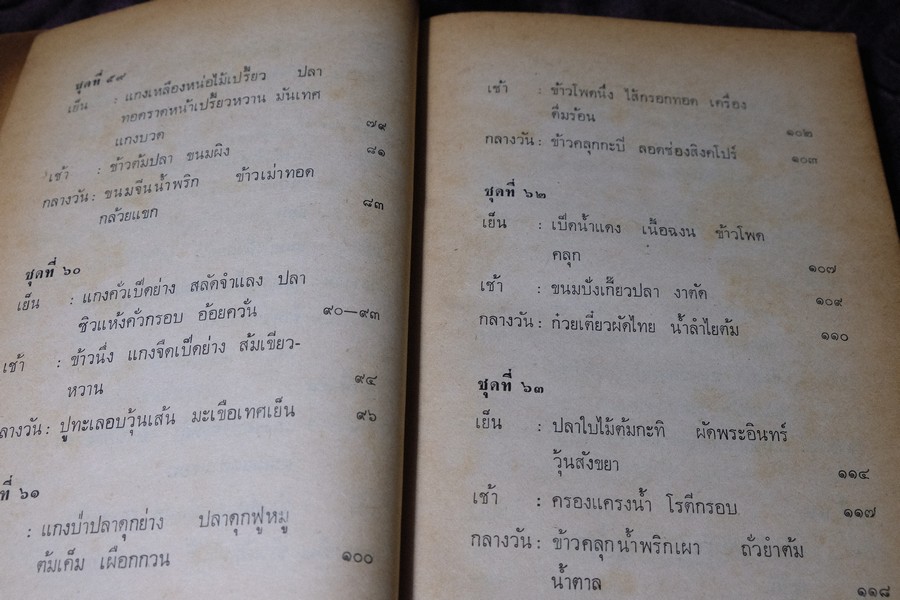 ชุดที่ ๕๙
เย็น : แกงเหลืองหน่อไม้เปรี้ยว ปลา
ทอดราดหน้าเปรี้ยวหวาน มันเทศ
แกงบวด ๗๙
เช้า : ข้าวต้มปลา ขนมผิง ๘๑
กลางวัน : ขนมจีนน้ำพริก ข้าวเม่าทอด
กล้วยแขก ๘๓
ชุดที่ ๖๐
เย็น : แกงคั่วเป็ดย่าง สลัดจำแลง ปลา
ซิวแห้งคั่วกรอบ อ้อยควั่น ๙๐—๙๓
เช้า : ข้าวนึ่ง แกงจืดเป็ดย่าง ส้มเขียว-
หวาน ๙๔
ลางวัน : ปูทะเลอบวุ้นเส้น มะเขือเทศเย็น ๙๖
ที่ ๖๑
: แกงป่าปลาดุกย่าง ปลาดุกฟูหมู
ต้มเค็ม เผือกกวน ๑๐๐
เช้า : ข้าวโพดนึ่ง ไส้กรอกทอด เครื่อง
ดื่มร้อน ๑๐๒
กลางวัน : ข้าวคลุกกะปิ ลอดช่องสิงคโปร์ ๑๐๓
ชุดที่ ๖๒
เย็น : เป็ดน้ำแดง เนื้อฉงน ข้าวโพด
คลุก ๑๐๗
เช้า : ขนมปังเกี๊ยวปลา งาตัด ๑๐๙
กลางวัน : ก๋วยเตี๋ยวผัดไทย น้ำลำไยต้ม ๑๑๐
ชุดที่ ๖๓
เย็น : ปลาใบไม้ต้มกะทิ ผัดพระอินทร์
วุ้นสังขยา ๑๑๔
เช้า : ครองแครงน้ำ โรตีกรอบ ๑๑๗
กลางวัน : ข้าวคลุกน้ำพริกเผา ถั่วยำต้ม
น้ำตาล ๑๑๘